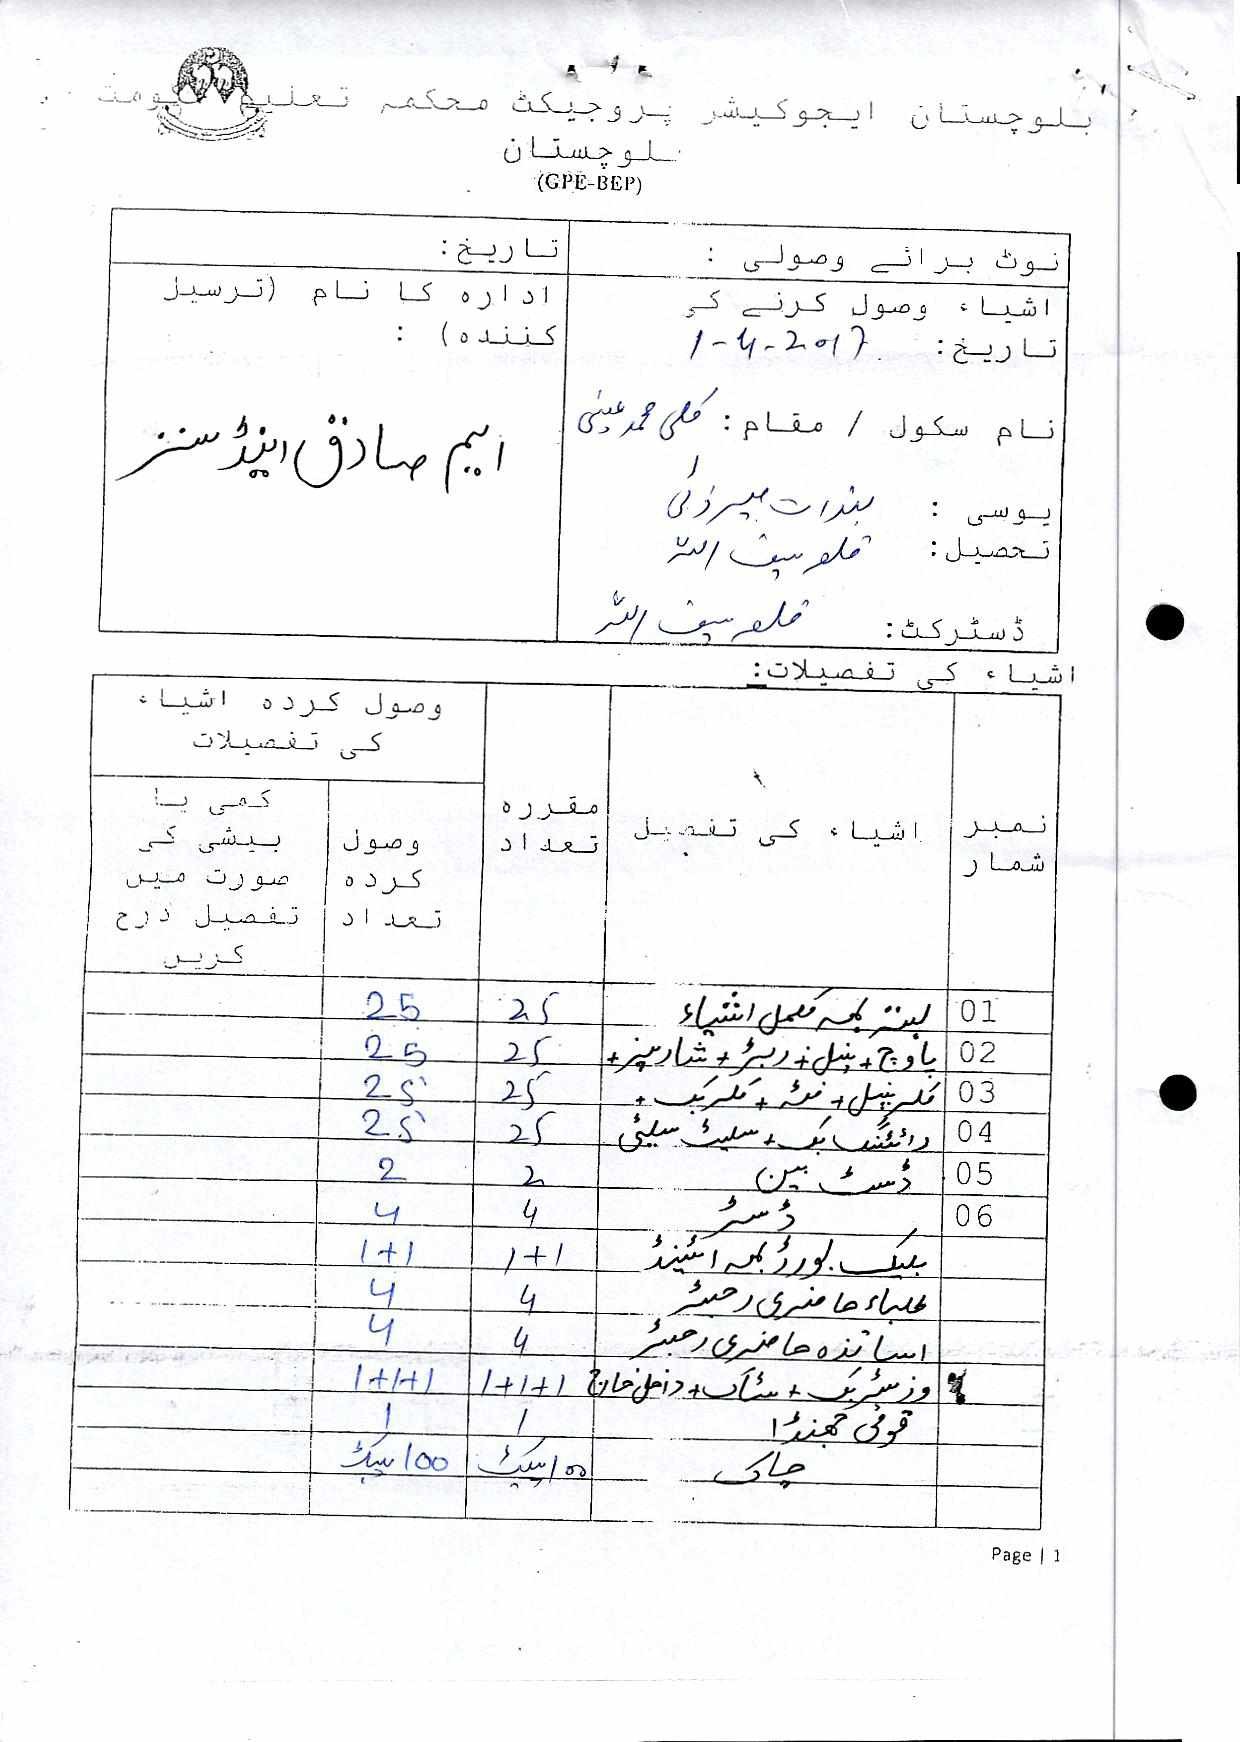 بلوچستان ایجوکیشر پروجیکٹ محکمہ تعلیم حکومت
بلوچستان
(GPE-BEP)
نوٹ برائے وصولی :
تاریخ:
اشیاء وصول کرنے کی
تاریخ: 1-4-2017
نام سکول / مقام: کلی محمد عیسٰی
یوسی :
تحصیل: قلعہ سیف اللہ
ڈسٹرکٹ: قلعہ سیف اللہ
ادارہ کا نام (ترسیل
کنندہ) :
ایم صادق اینڈ سنز
اشیاء کی تفصیلات:
نمبر شمار
اشیاء کی تفصیل
مقررہ تعداد
وصول کردہ اشیاء کی تفصیلات
وصول کردہ تعداد
کمی یا بیشی کی صورت میں تفصیل درج کریں
01 بستہ بمعہ مکمل اشیاء 25 25
02 پاوچ + پنسل + ربڑ + شارپنر + 25 25
03 کلر پنسل + فٹہ + کلر بک + 25 25
04 رائٹنگ بک + سلیٹ سلیٹی 25 25
05 ڈسٹ بین 2 2
06 ڈسٹر 4 4
بلیک بورڈ بمعہ اسٹینڈ 1+1 1+1
طلباء حاضری رجسٹر 4 4
اساتذہ حاضری رجسٹر 4 4
وزٹر بک + سٹاک + داخل خارج 1+1+1 1+1+1
قومی جھنڈا 1 1
چاک 100 پیکٹ 100 پیکٹ
Page | 1